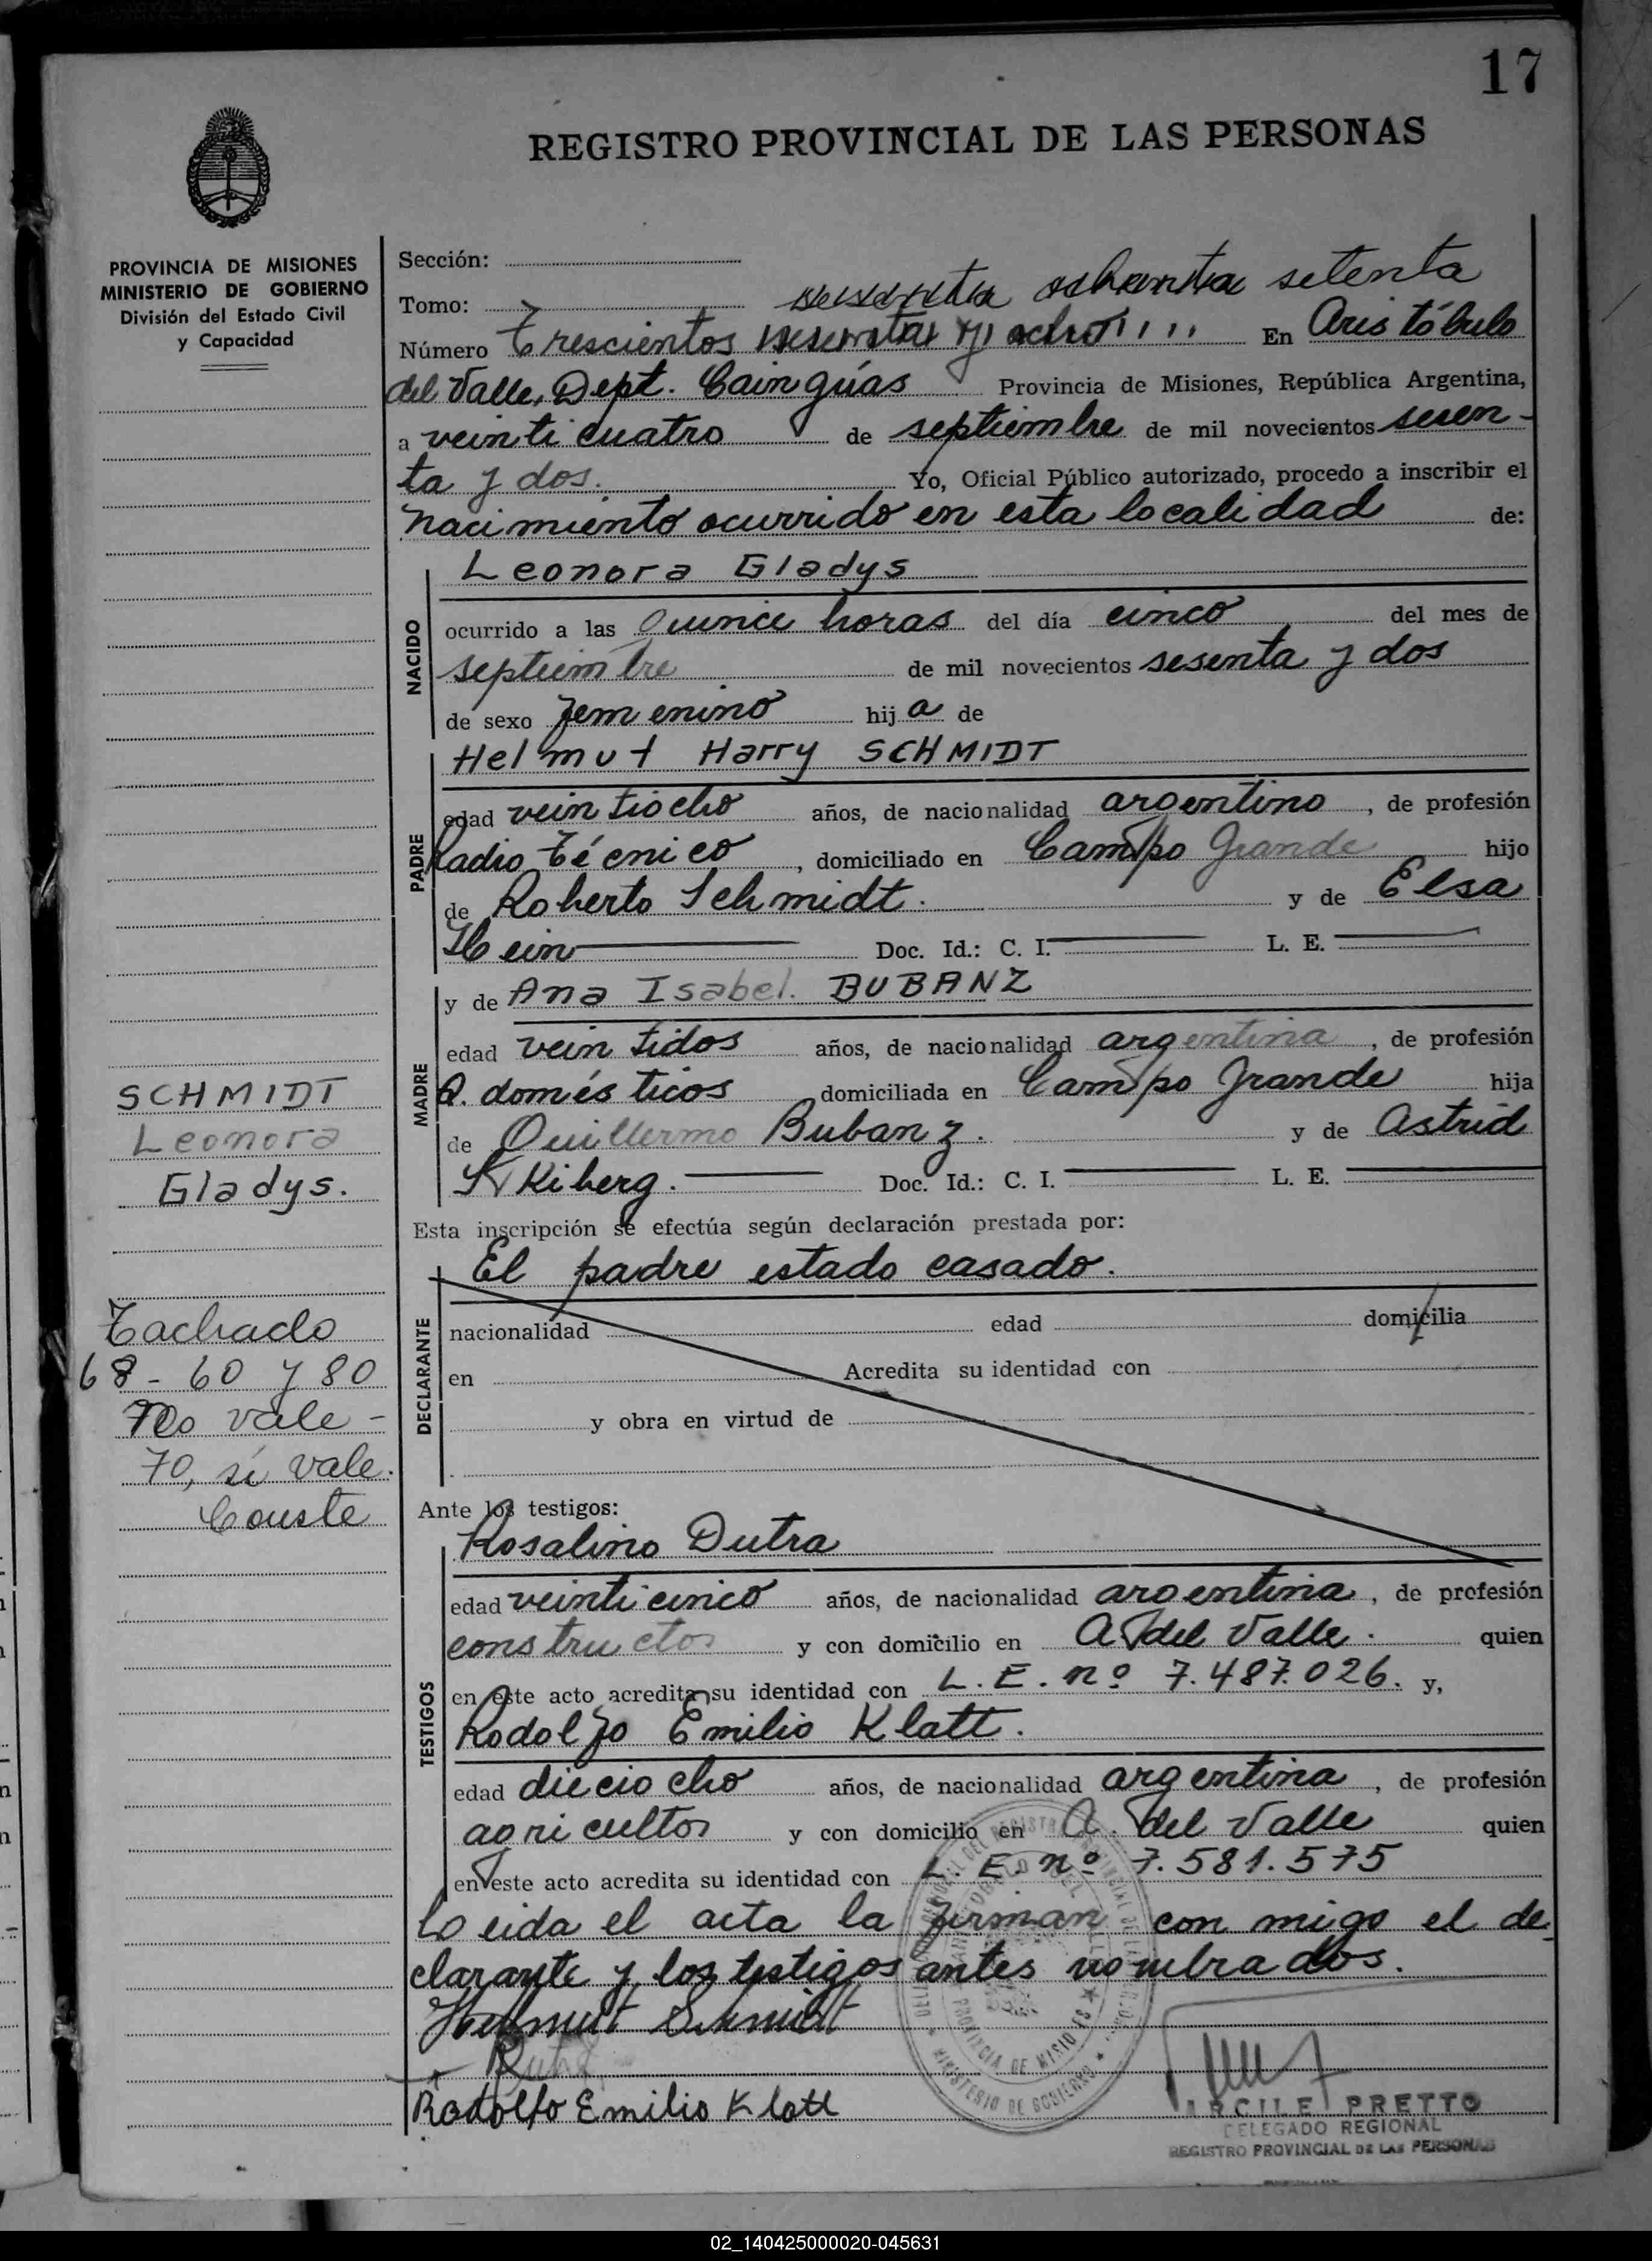 17
REGISTRO PROVINCIAL DE LAS PERSONAS
PROVINCIA DE MISIONES
MINISTERIO DE GOBIERNO
División del Estado Civil
y Capacidad
Sección:
Tomo: sesenta ochenta setenta
Número Trescientos sesenta y ocho En Aristóbulo
del Valle, Dept. Cainguas Provincia de Misiones, República Argentina,
a veinti cuatro de septiembre de mil novecientos sesen-
ta y dos. Yo, Oficial Público autorizado, procedo a inscribir el
nacimiento ocurrido en esta localidad de:
NACIDO
Leonora Gladys
ocurrido a las quince horas del día cinco del mes de
septiembre de mil novecientos sesenta y dos
de sexo femenino hij a de
PADRE
Helmut Harry SCHMIDT
edad veintiocho años, de nacionalidad argentino, de profesión
Radio técnico, domiciliado en Campo Grande hijo
de Roberto Schmidt. y de Elsa
Hein Doc. Id.: C. I. L. E.
MADRE
y de Ana Isabel. BUBANZ
edad veintidos años, de nacionalidad argentina, de profesión
Q. domésticos domiciliada en Campo Grande hija
de Guillermo Bubanz. y de Astrid
Kiberg. Doc. Id.: C. I. L. E.
SCHMIDT
Leonora
Gladys.
Esta inscripción se efectúa según declaración prestada por:
DECLARANTE
El padre estado casado.
nacionalidad edad domicilia
en Acredita su identidad con
y obra en virtud de
Tachado
68 - 60 y 80
No vale -
70, sí vale.
Conste
Ante los testigos:
TESTIGOS
Rosalino Dutra
edad veinticinco años, de nacionalidad argentina, de profesión
constructor y con domicilio en A. del Valle. quien
en este acto acredita su identidad con L. E. nº 7.487.026. y,
Rodolfo Emilio Klatt.
edad dieciocho años, de nacionalidad argentina, de profesión
agricultor y con domicilio en A. del Valle quien
en este acto acredita su identidad con L. E. nº 7.581.575
Leida el acta la firman con migo el de
clarante y los testigos antes nombrados.
Helmut Schmidt
Rodolfo Emilio Klatt
PROVINCIA DE MISIONES
MINISTERIO DE GOBIERNO
ARCILE PRETTO
DELEGADO REGIONAL
REGISTRO PROVINCIAL DE LAS PERSONAS
02_140425000020-045631